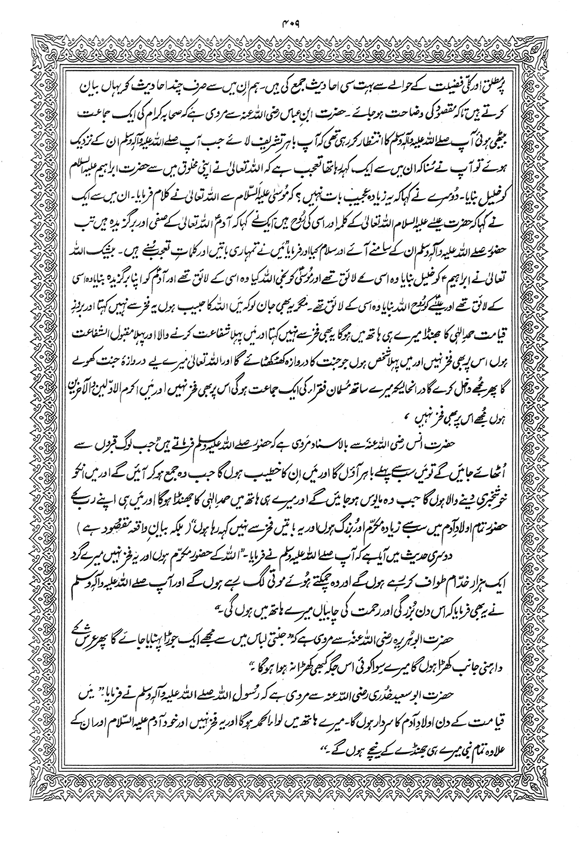 ۴۰۹
پر مطلق اور کلی فضیلت کے حوالے سے بہت سی احادیث جمع کی ہیں۔ ہم ان میں سے صرف چند احادیث کو یہاں بیان
کرتے ہیں تاکہ مقصود کی وضاحت ہو جائے۔ حضرت ابن عباس رضی اللہ عنہ سے مروی ہے کہ صحابہ کرام کی ایک جماعت
بیٹھی ہوئی آپ صلے اللہ علیہ وآلہ وسلم کا انتظار کر رہی تھی کہ آپ باہر تشریف لائے جب آپ صلے اللہ علیہ وآلہ وسلم ان کے نزدیک
ہوئے تو آپ نے سُنا کہ ان میں سے ایک کہہ رہا تھا تعجب ہے کہ اللہ تعالیٰ نے اپنی مخلوق میں سے حضرت ابراہیم علیہ السلام
کو خلیل بنایا۔ دُوسرے نے کہا کہ یہ زیادہ عجیب بات نہیں؟ کہ موسیٰ علیہ السلام سے اللہ تعالیٰ نے کلام فرمایا۔ ان میں سے ایک
نے کہا کہ حضرت عیسے علیہ السلام اللہ تعالیٰ کے کلمہ اور اسی کی رُوح ہیں ایک نے کہا کہ آدمؑ اللہ تعالیٰ کے صفی اور برگزیدہ ہیں تب
حضور صلے اللہ علیہ وآلہ وسلم ان کے سامنے آئے اور سلام کیا اور فرمایا "میں نے تمہاری باتیں اور کلماتِ تعجب سُنے ہیں۔ بیشک اللہ
تعالیٰ نے ابراہیمؑ کو خلیل بنایا وہ اسی کے لائق تھے اور موسیٰؑ کو نجی اللہ کیا وہ اسی کے لائق تھے اور آدمؑ کو اپنا برگزیدہ بنایا وہ اسی
کے لائق تھے اور عیسیٰؑ کو رُوح اللہ بنایا وہ اسی کے لائق تھے۔ مگر یہ بھی جان لو کہ میں اللہ کا حبیب ہوں یہ فخر سے نہیں کہتا اور بروزِ
قیامت حمدِ الہٰی کا جھنڈا میرے ہی ہاتھ میں ہوگا یہ بھی فخر سے نہیں کہتا اور میں پہلا شفاعت کرنے والا اور پہلا مقبول الشفاعت
ہوں اس پر بھی فخر نہیں اور میں پہلا شخص ہوں جو جنت کا دروازہ کھٹکھٹائے گا اور اللہ تعالیٰ میرے لیے دروازۂ جنت کھولے
گا پھر مجھے داخل کرے گا درانحالیکہ میرے ساتھ مُسلمان فقراء کی ایک جماعت ہوگی اس پر بھی فخر نہیں اور میں اکرم الاوّلین والآخرین
ہوں مجھے اس پر بھی فخر نہیں"
حضرت انس رضی اللہ عنہ سے بالاسناد مروی ہے کہ حضور صلے اللہ علیہ وآلہ وسلم فرماتے ہیں "جب لوگ قبروں سے
اُٹھائے جائیں گے تو میں سب سے پہلے باہر آؤں گا اور میں ان کا خطیب ہوں گا جب وہ جمع ہو کر آئیں گے اور میں انکو
خوشخبری دینے والا ہوں گا جب وہ مایوس ہو جائیں گے اور میرے ہی ہاتھ میں حمدِ الہٰی کا جھنڈا ہوگا اور میں ہی اپنے رب کے
حضور تمام اولادِ آدم میں سب سے زیادہ مکرّم اور بزرگ ہوں اور یہ باتیں فخر سے نہیں کہہ رہا ہوں" (بلکہ بیانِ واقعہ مقصود ہے)
دوسری حدیث میں آیا ہے کہ آپ صلے اللہ علیہ وآلہ وسلم نے فرمایا۔ "اللہ کے حضور مکرّم ہوں اور یہ فخر نہیں میرے گرد
ایک ہزار خُدّام طواف کر رہے ہوں گے اور وہ چمکتے ہُوئے موتی لگ رہے ہوں گے اور آپ صلے اللہ علیہ وآلہ وسلم
نے یہ بھی فرمایا کہ اس دن بُزرگی اور رحمت کی چابیاں میرے ہاتھ میں ہوں گی۔"
حضرت ابو ہُریرہ رضی اللہ عنہ سے مروی ہے کہ "جنتی لباس میں سے مجھے ایک جوڑا پہنایا جائے گا پھر عرش کے
داہنی جانب کھڑا ہوں گا میرے سوا کوئی اس جگہ کبھی کھڑا نہ ہوا ہوگا۔"
حضرت ابو سعید خدری رضی اللہ عنہ سے مروی ہے کہ رسول اللہ صلے اللہ علیہ وآلہ وسلم نے فرمایا۔ "میں
قیامت کے دن اولادِ آدم کا سردار ہوں گا۔ میرے ہاتھ میں لواء الحمد ہوگا اور یہ فخر نہیں اور خود آدم علیہ السلام اور ان کے
علاوہ تمام نبی میرے ہی جھنڈے کے نیچے ہوں گے۔"